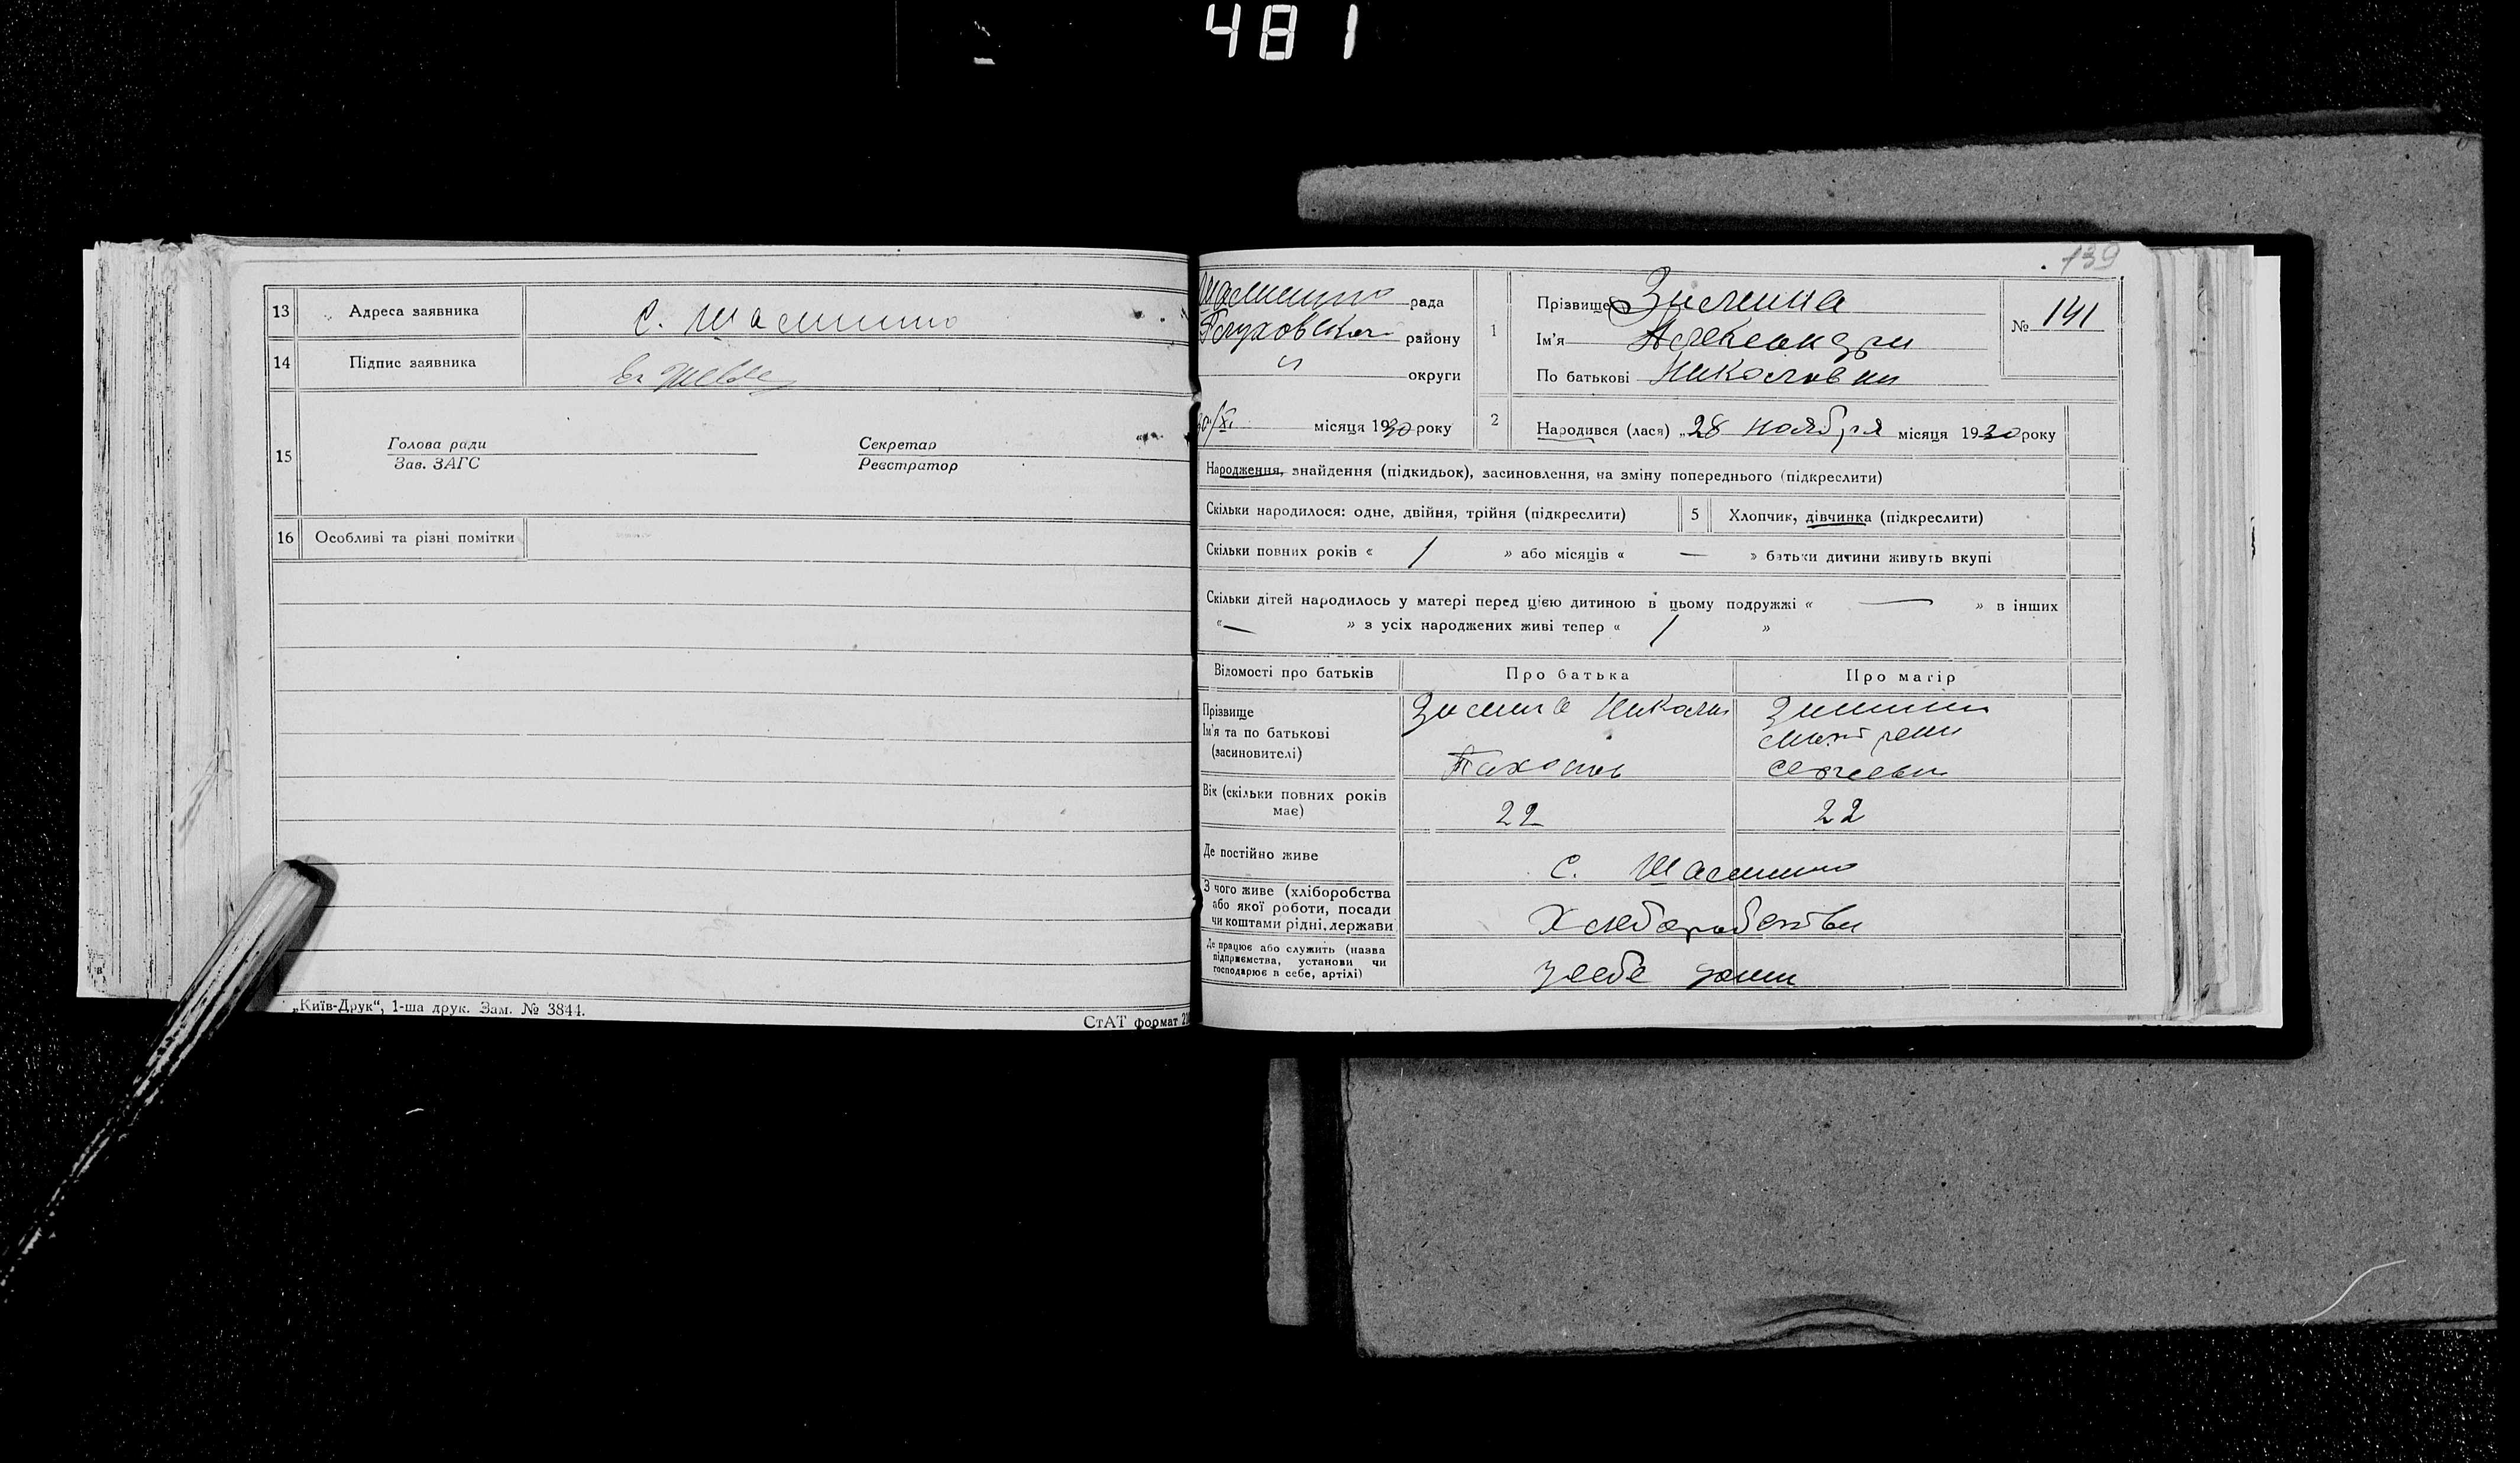 481
13 Адреса заявника с. Шалимино
14 Підпис заявника
15 Голова ради Секретар
Зав. ЗАГС Реєстратор
16 Особливі та різні помітки
„Київ-Друк“, 1-ша друк. Зам. № 3844.
СтАТ формат
139
рада
району
округи
30/XI місяця 1930 року
1 Прізвище Зимина
Ім'я Александра
По батькові Николаевна
№ 141
2 Народився (лася) „28 ноября місяця 1930 року
Народження, знайдення (підкидьок), засиновлення, на зміну попереднього (підкреслити)
Скільки народилося: одне, двійня, трійня (підкреслити) 5 Хлопчик, дівчинка (підкреслити)
Скільки повних років « 1 » або місяців « — » батьки дитини живуть вкупі
Скільки дітей народилось у матері перед цією дитиною в цьому подружжі « — » в інших
« — » з усіх народжених живі тепер « 1 »
Відомості про батьків Про батька Про матір
Прізвище
Ім'я та по батькові
(засиновителі)
Вік (скільки повних років
має) 22 22
Де постійно живе с. Шалимино
З чого живе (хліборобства
або якої роботи, посади
чи коштами рідні, держави
Де працює або служить (назва
підприємства, установи чи
господарює в себе, артілі)
у себе дома